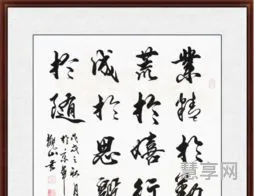 業精於勤
荒於嬉行
成於思毁
於隨
戊戌之秋月
於京華
觀山書
掌享网